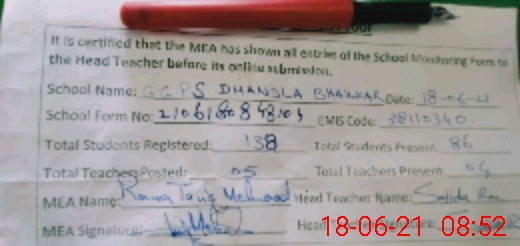 It is certified that the MEA has shown all entries of the School Monitoring Form to
the Head Teacher before its online submission.
School Name: GGPS DHANDLA BHAKKAR Date: 18-06-21
School Form No: EMIS Code: 38110340
Total Students Registered: 138 Total Students Present: 86
Total Teachers Posted: 05 Total Teachers Present: 04
MEA Name: Rana Tariq Mehmood Head Teacher Name: Sajida
MEA Signature: Head
18-06-21 08:52